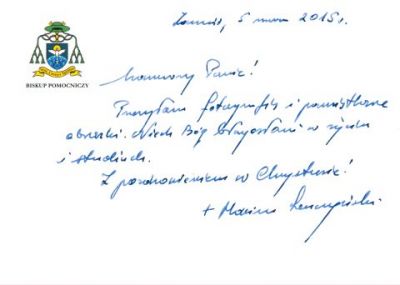 Zamość, 5 marca 2015 r.
BISKUP POMOCNICZY
Szanowny Panie!
Przesyłam fotografię i pamiątkowe
obrazki. Niech Bóg błogosławi w życiu
i studiach.
Z pozdrowieniem w Chrystusie!
+ Mariusz Leszczyński